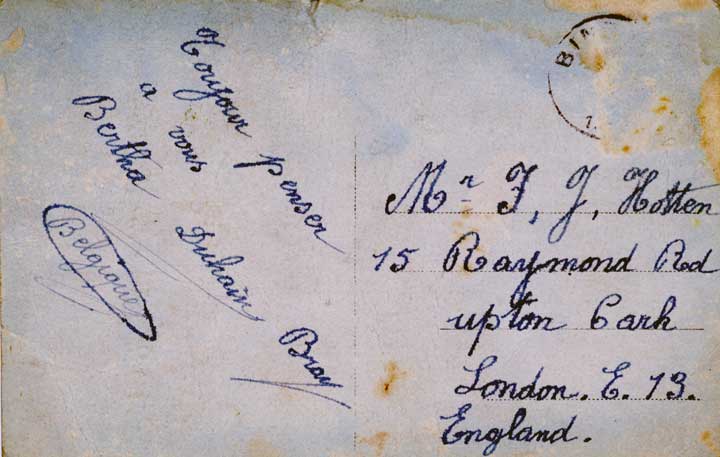 Toujour penser
a vous
Bertha Duhain
Bray
Belgique
BIN
1.
Mr F, J, Hotten
15 Raymond Rd
upton Park
London. E. 13.
England.